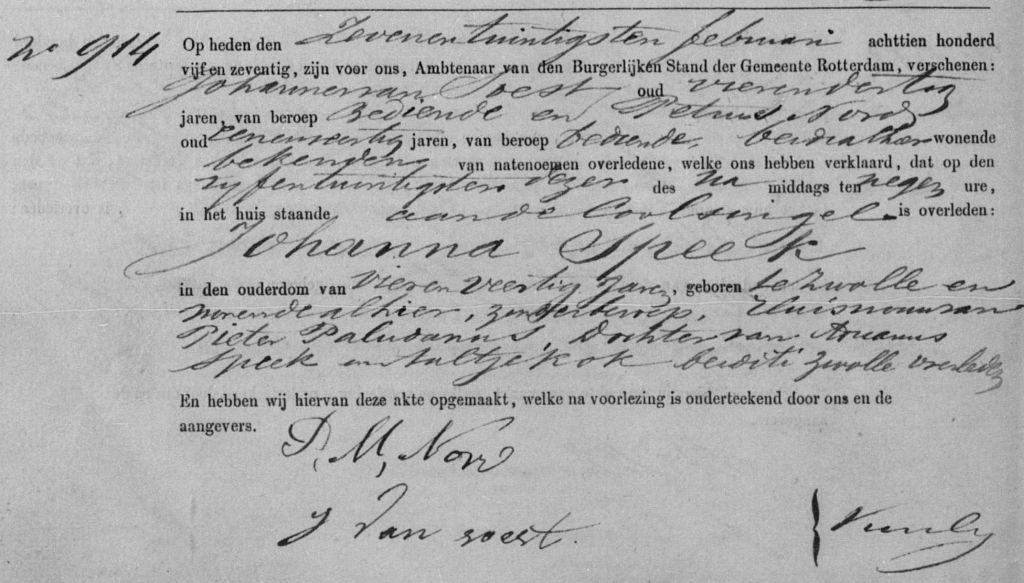 No 914
Op heden den Zevenentwintigsten februari achttien honderd
vijf en zeventig, zijn voor ons, Ambtenaar van den Burgerlijken Stand der Gemeente Rotterdam, verschenen:
Johannes van Soest oud vierendertig
jaren, van beroep Bediende en Petrus Nord
oud jaren, van beroep bediende, beiden alhier wonende
bekenden van natenoemen overledene, welke ons hebben verklaard, dat op den
vyfentwintigsten dezer des na middags ten negen ure,
in het huis staande aan de Coolsingel is overleden:
Johanna Speek
in den ouderdom van vier en veertig jaren, geboren te Zwolle en
wonende alhier, zonder beroep, Huisvrouw van
Pieter Paludanus, Dochter van
Speek en Aaltje Kok beide te Zwolle overleden
En hebben wij hiervan deze akte opgemaakt, welke na voorlezing is onderteekend door ons en de
aangevers.
P. M. Nord
J van soest.